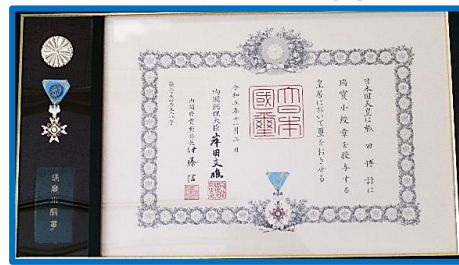 日本国天皇は 田 博
瑞宝小綬章を授与する
皇居において璽をおさせる
大日本國璽
令和五年十一月三日
内閣総理大臣 岸田文雄
内閣府賞勲局長 伊藤 信
瑞宝小綬章